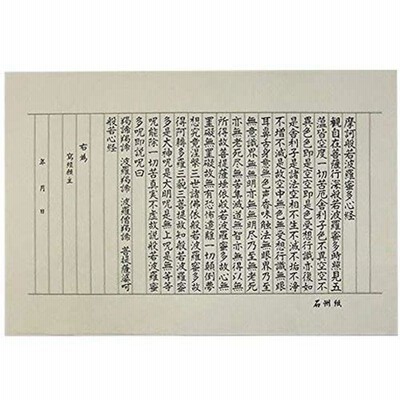 摩訶般若波羅蜜多心經
觀自在菩薩行深般若波羅蜜多時照見五
蘊皆空度一切苦厄舎利子色不異空空不
異色色即是空空即是色受想行識亦復如
是舎利子是諸法空相不生不滅不垢不淨
不增不減是故空中無色無受想行識無眼
耳鼻舌身意無色聲香味觸法無眼界乃至
無意識界無無明亦無無明盡乃至無老死
亦無老死盡無苦集滅道無智亦無得以無
所得故菩提薩埵依般若波羅蜜多故心無
罣礙無罣礙故無有恐怖遠離一切顛倒夢
想究竟涅槃三世諸佛依般若波羅蜜多故
得阿耨多羅三藐三菩提故知般若波羅蜜
多是大神呪是大明呪是無上呪是無等等
呪能除一切苦真実不虚故説般若波羅蜜
多呪即説呪曰
羯諦羯諦 波羅羯諦 波羅僧羯諦 菩提薩婆呵
般若心經
右為
寫經主
年 月 日
石州紙